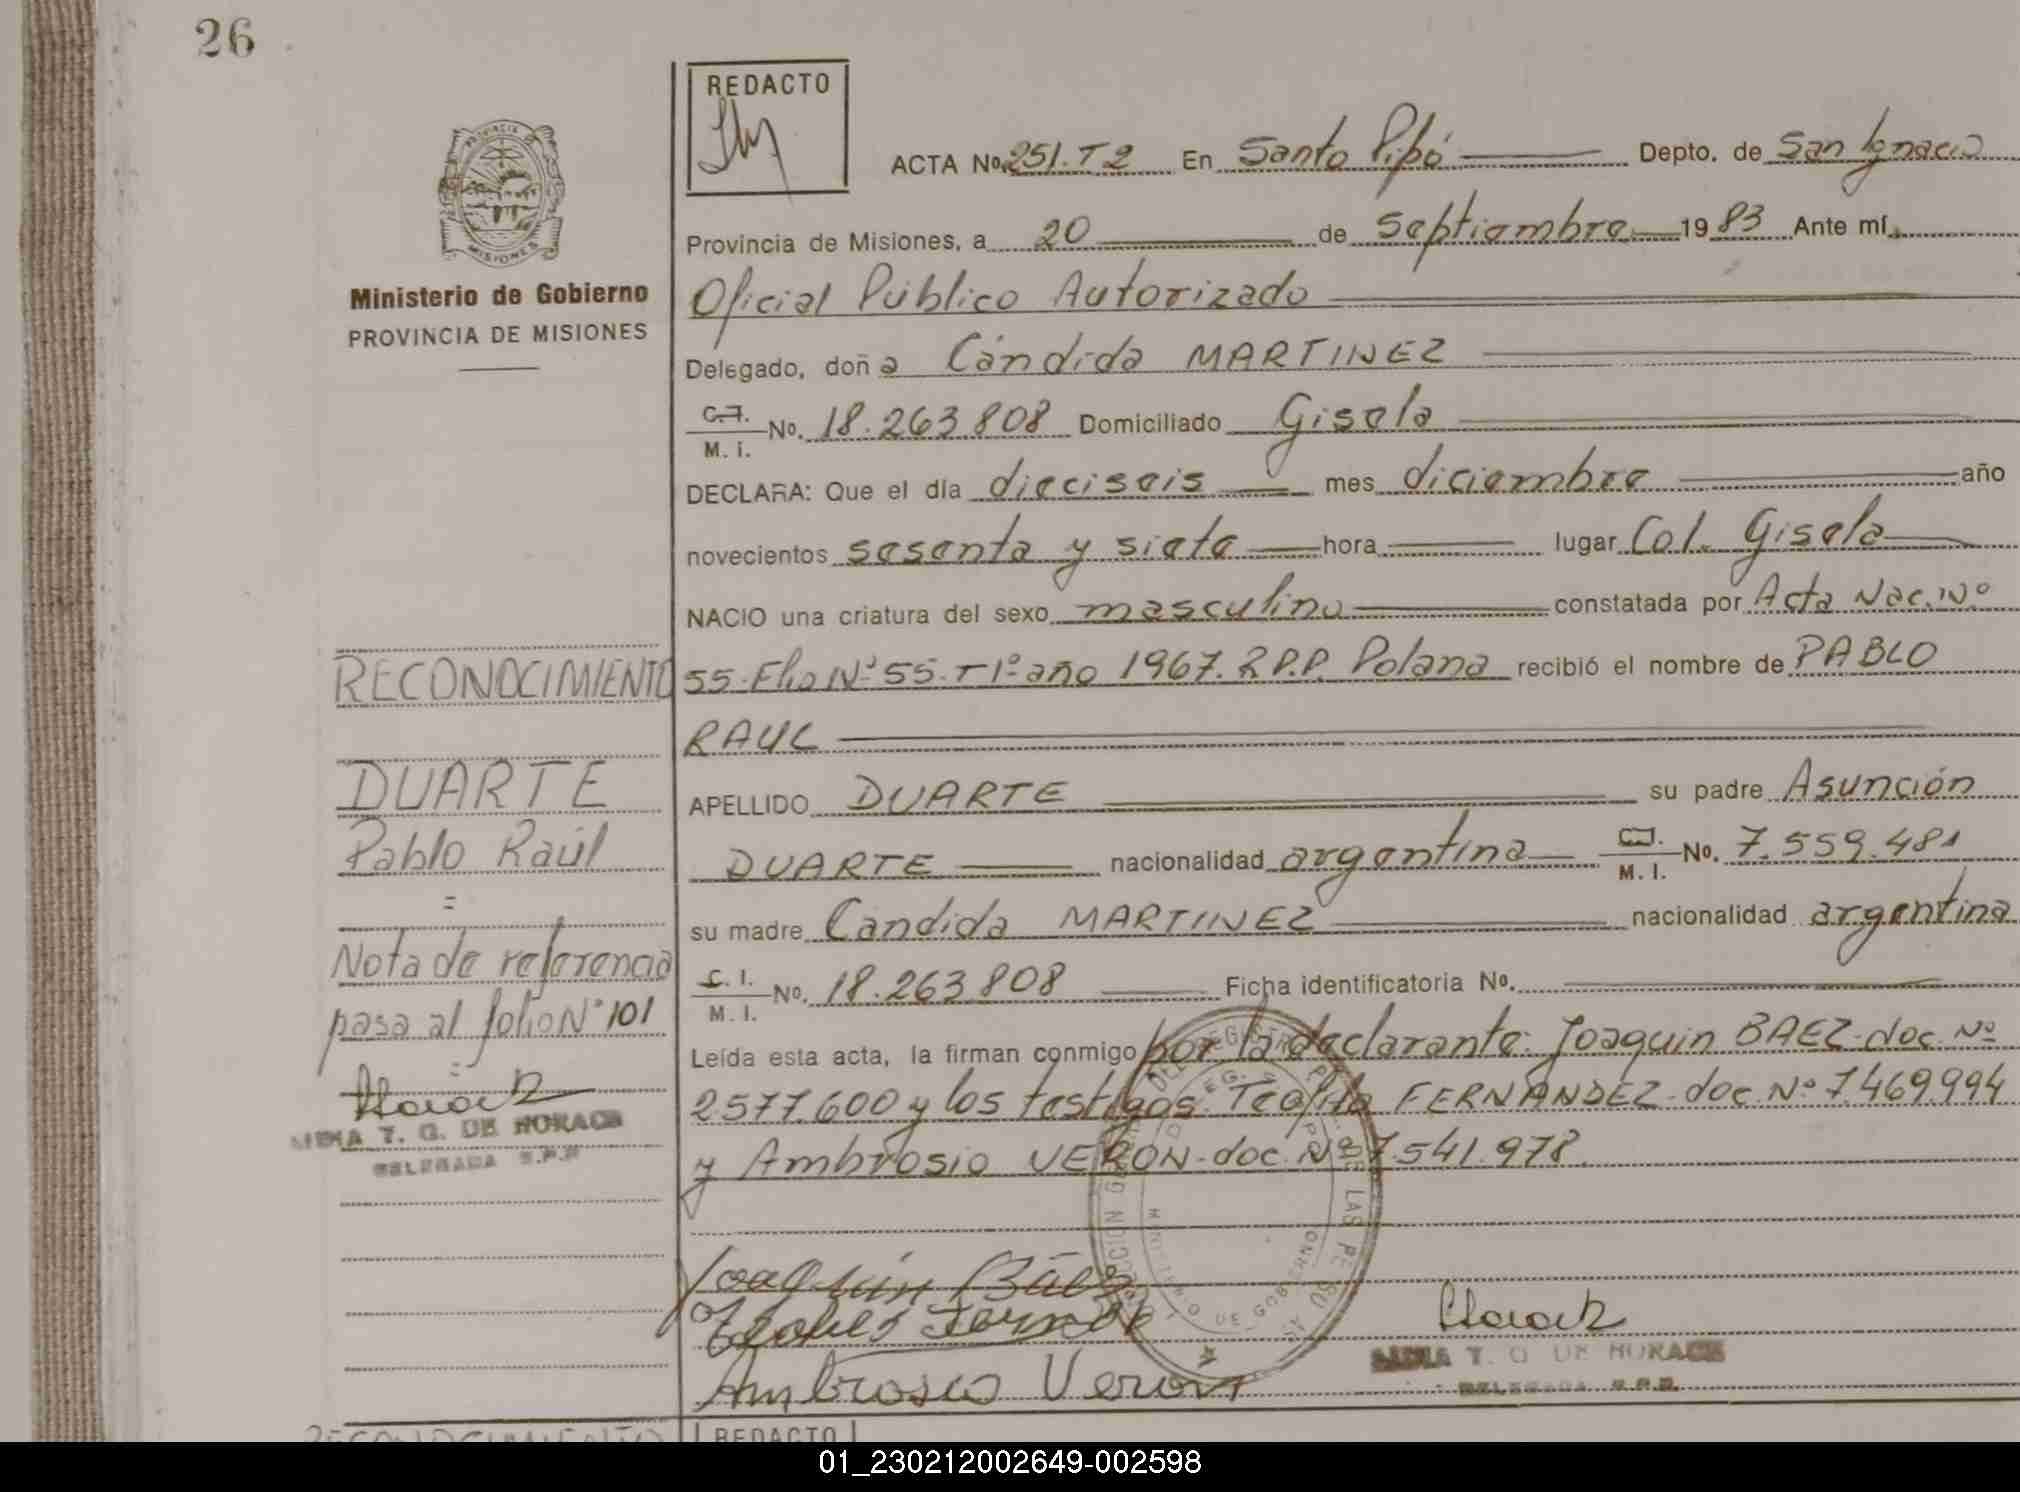 26
REDACTO
ACTA No. 251. T2 En Santo Pipó Depto. de San Ignacio
PROVINCIA MISIONES
Provincia de Misiones, a 20 de Septiembre 1983 Ante mí,
Ministerio de Gobierno
PROVINCIA DE MISIONES
Oficial Público Autorizado
Delegado, doña Cándida MARTINEZ
C.I. M. I. No. 18.263.808 Domiciliado Gisela
DECLARA: Que el día dieciseis mes diciembre año
novecientos sesenta y siete hora lugar Col. Gisela
NACIO una criatura del sexo masculino constatada por Acta Nac. Nº
RECONOCIMIENTO
55. Flio Nº 55. T 1º año 1967. R.P.P. Polana recibió el nombre de PABLO
RAUL
DUARTE
Pablo Raúl
=
APELLIDO DUARTE su padre Asunción
DUARTE nacionalidad argentina C.I. M. I. No. 7.559.481
su madre Candida MARTINEZ nacionalidad argentina
Nota de referencia
pasa al folio Nº 101
=
C. I. M. I. No. 18.263.808 Ficha identificatoria No.
Leída esta acta, la firman conmigo por la declarante: Joaquin BAEZ. doc. Nº
2577.600 y los testigos: Teofilo FERNANDEZ. doc. Nº 7.469.994
y Ambrosio VERON. doc. Nº 7.541.978.
T. G. DE HORACK
DELEGADA R.P.P.
Joaquin Báez
Ambrosio Veron
MINISTERIO DE GOBIERNO
T. G. DE HORACK
DELEGADA R.P.P.
RECONOCIMIENTO
REDACTO
01_230212002649-002598